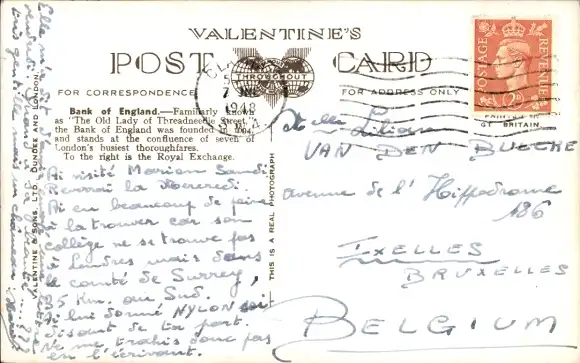 VALENTINE'S
POST CARD
THROUGHOUT
FOR CORRESPONDENCE
FOR ADDRESS ONLY
Bank of England.—Familiarly known
as "The Old Lady of Threadneedle Street,"
the Bank of England was founded in 1694
and stands at the confluence of seven of
London's busiest thoroughfares.
To the right is the Royal Exchange.
J'ai visité Marion Samedi
Reverrai la Mercredi.
Ai eu beaucoup de peine
à la trouver car son
collège ne se trouve pas
à Londres mais dans
le comté de Surrey,
35 Km. au Sud.
Ai lui donné NYLON soi
disant de ta part.
Ne me trahis donc pas
en l'écrivant.
Elle m'a dit
VALENTINE & SONS, LTD. DUNDEE AND LONDON.
THIS IS A REAL PHOTOGRAPH
7
1948
POSTAGE REVENUE
2D
GT BRITAIN.
Melle Liliane
VAN DEN BULCKE
avenue de l'Hippodrome
186
IXELLES
BRUXELLES
BELGIUM